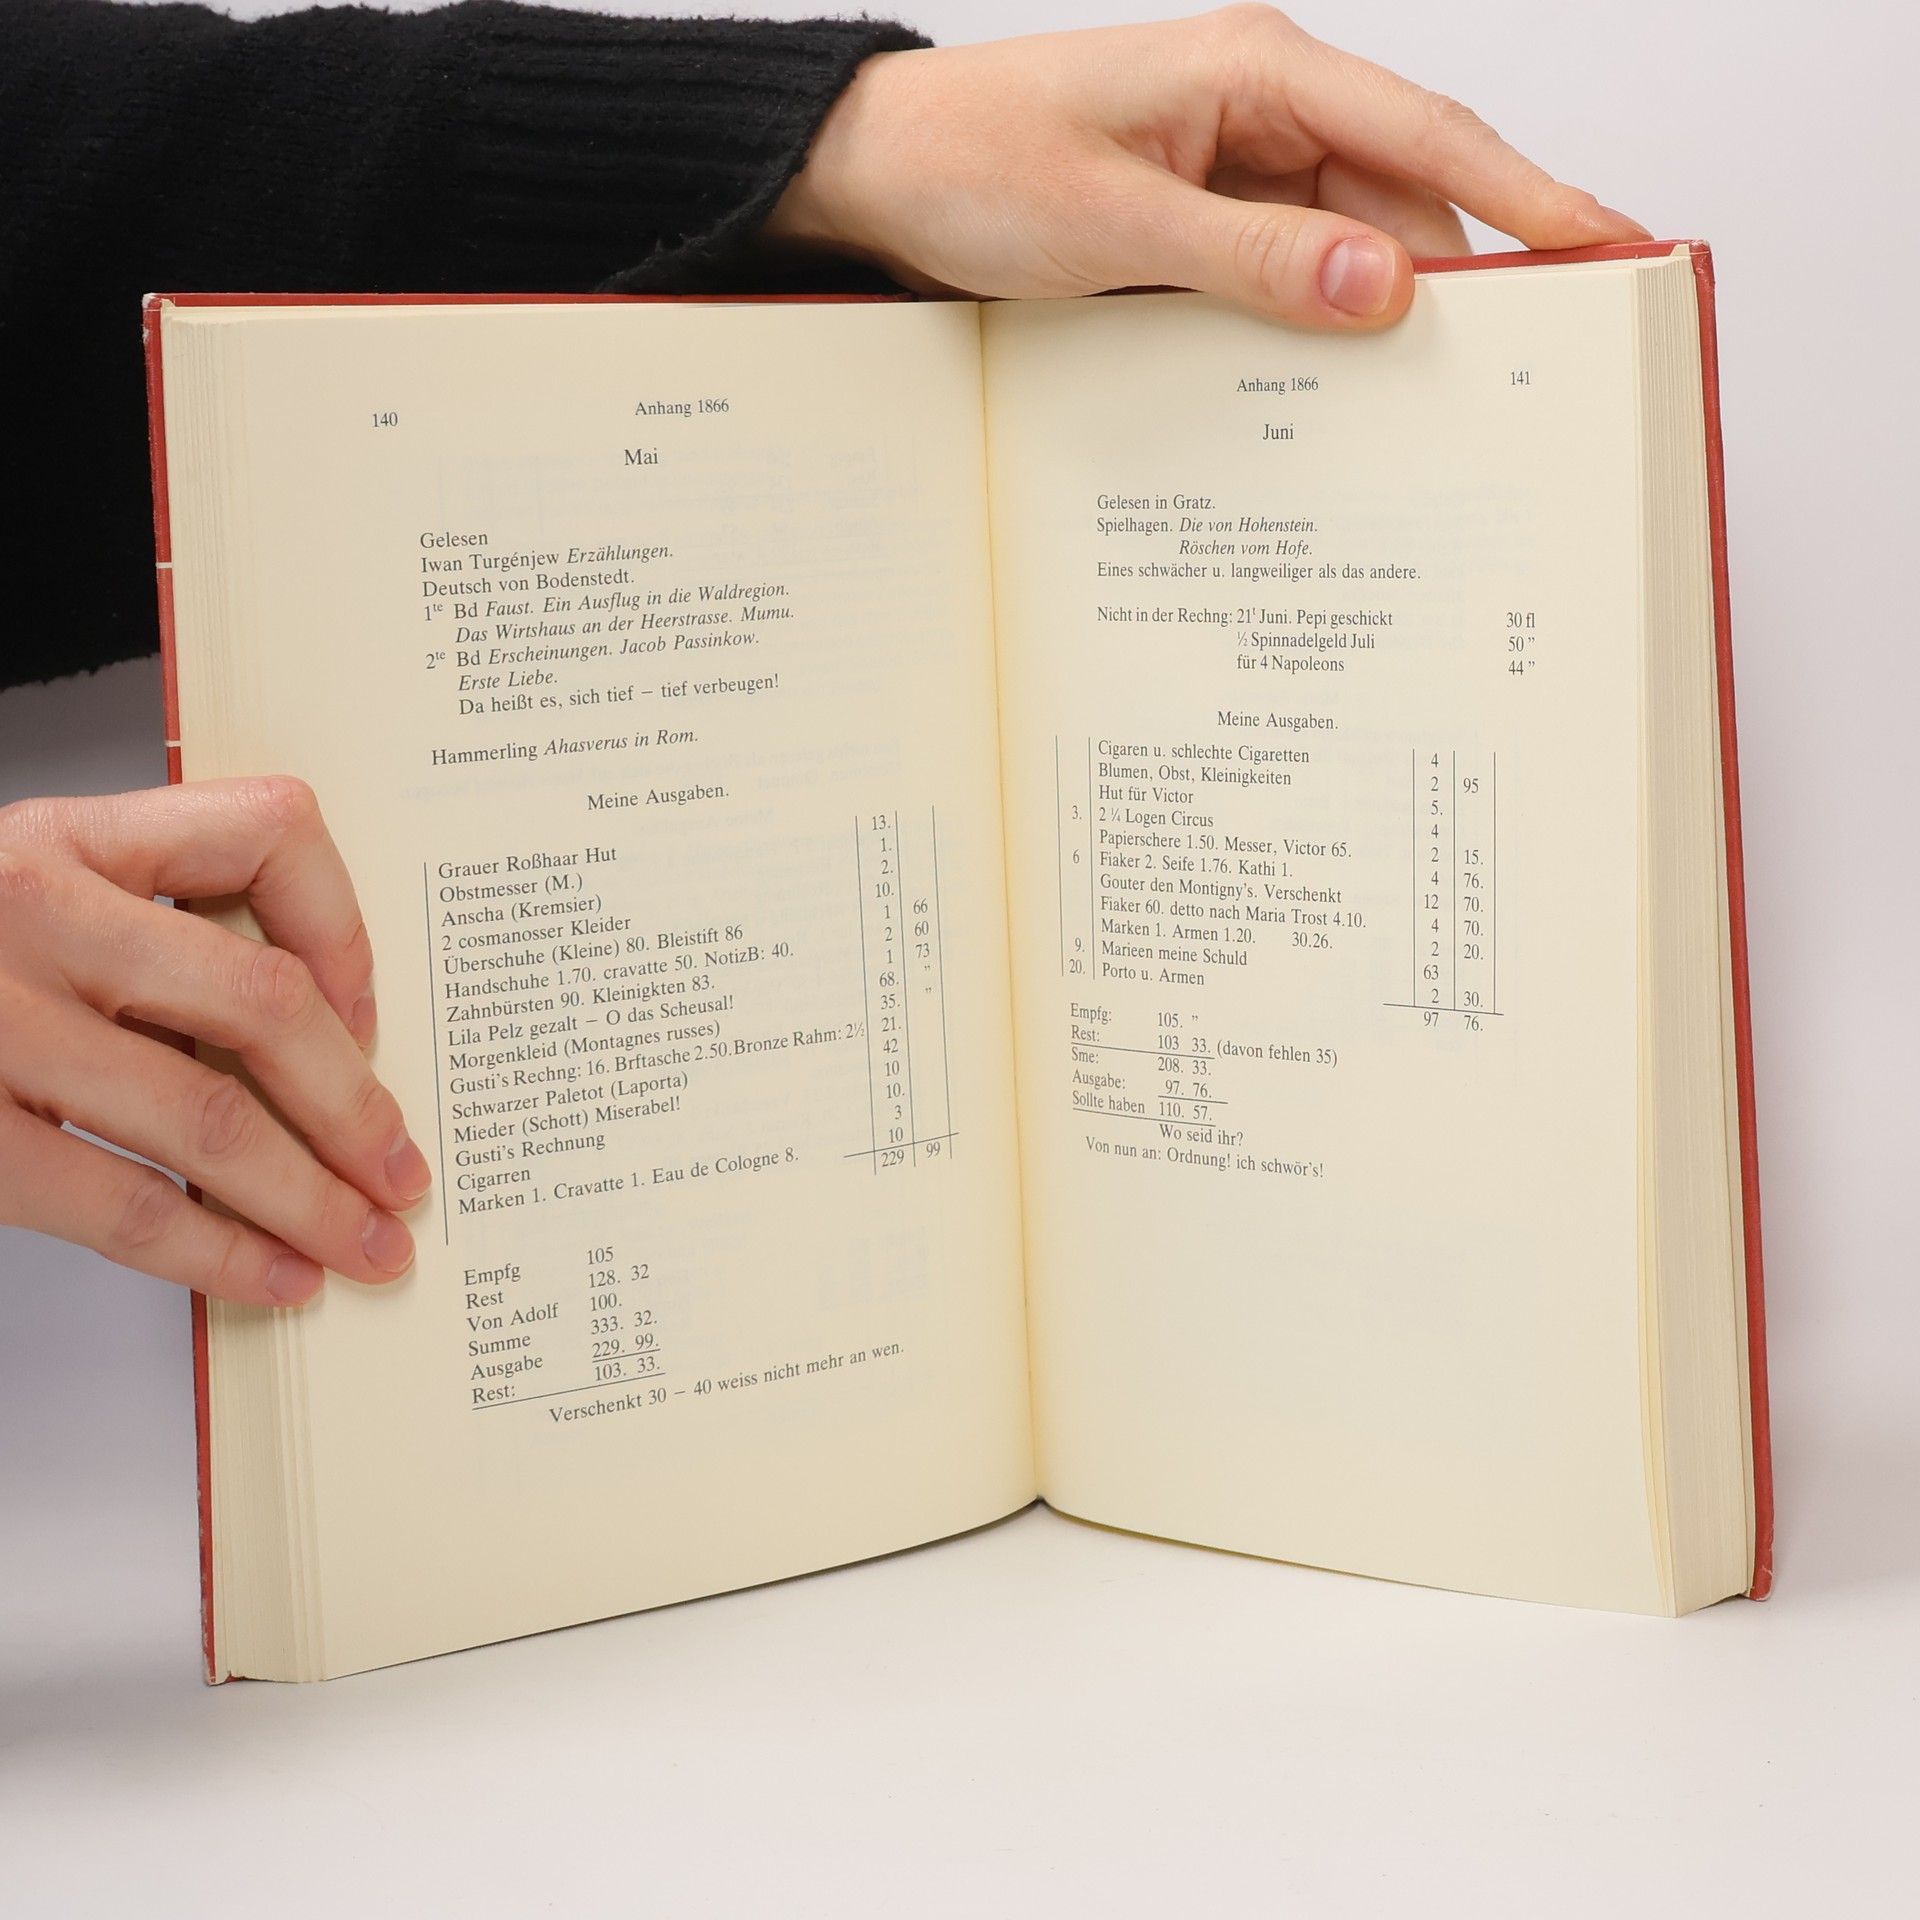 140 Anhang 1866
Mai
Gelesen
Iwan Turgénjew Erzählungen.
Deutsch von Bodenstedt.
1te Bd Faust. Ein Ausflug in die Waldregion.
Das Wirtshaus an der Heerstrasse. Mumu.
2te Bd Erscheinungen. Jacob Passinkow.
Erste Liebe.
Da heißt es, sich tief – tief verbeugen!
Hammerling Ahasverus in Rom.
Meine Ausgaben.
Grauer Roßhaar Hut 13.
Obstmesser (M.) 1.
Anscha (Kremsier) 2.
2 cosmanosser Kleider 10.
Überschuhe (Kleine) 80. Bleistift 86 1 66
Handschuhe 1.70. cravatte 50. NotizB: 40. 2 60
Zahnbürsten 90. Kleinigkten 83. 1 73
Lila Pelz gezalt – O das Scheusal! 68. ”
Morgenkleid (Montagnes russes) 35. ”
Gusti's Rechng: 16. Brftasche 2.50. Bronze Rahm: 2½ 21.
Schwarzer Paletot (Laporta) 42
Mieder (Schott) Miserabel! 10
Gusti's Rechnung 10.
Cigarren 3
Marken 1. Cravatte 1. Eau de Cologne 8. 10
229 99
Empfg 105
Rest 128. 32
Von Adolf 100.
Summe 333. 32.
Ausgabe 229. 99.
Rest: 103. 33.
Verschenkt 30 – 40 weiss nicht mehr an wen.
Anhang 1866 141
Juni
Gelesen in Gratz.
Spielhagen. Die von Hohenstein.
Röschen vom Hofe.
Eines schwächer u. langweiliger als das andere.
Nicht in der Rechng: 21t Juni. Pepi geschickt 30 fl
½ Spinnadelgeld Juli 50 ”
für 4 Napoleons 44 ”
Meine Ausgaben.
Cigaren u. schlechte Cigaretten 4
Blumen, Obst, Kleinigkeiten 2 95
Hut für Victor 5.
3. 2 ¼ Logen Circus 4
Papierschere 1.50. Messer, Victor 65. 2 15.
6 Fiaker 2. Seife 1.76. Kathi 1. 4 76.
Gouter den Montigny's. Verschenkt 12 70.
Fiaker 60. detto nach Maria Trost 4.10. 4 70.
Marken 1. Armen 1.20. 30.26. 2 20.
9. Marieen meine Schuld 63
20. Porto u. Armen 2 30.
97 76.
Empfg: 105. ”
Rest: 103 33. (davon fehlen 35)
Sme: 208. 33.
Ausgabe: 97. 76.
Sollte haben 110. 57.
Wo seid ihr?
Von nun an: Ordnung! ich schwör's!